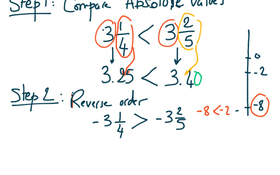 Step 1: Compare Absolute Values
3 1/4 < 3 2/5
3.25 < 3.40
Step 2: Reverse order
-3 1/4 > -3 2/5
0
-2
-8 < -2
-8